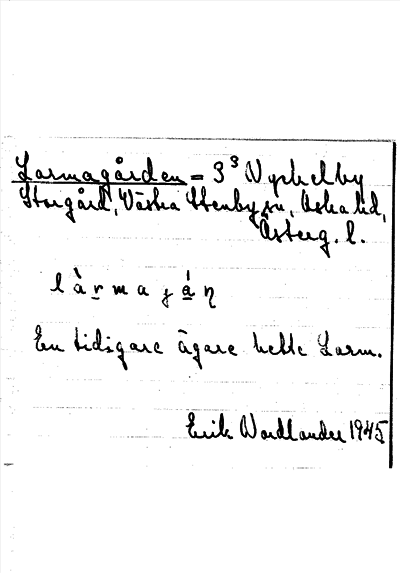 Larmagården = 3³ Nyckelby
Storgård, Västra Stenby sn, Aska hd,
Österg. l.
l à r m a ɟ á ŋ
En tidigare ägare hette Larm.
Erik Wordlander 1945